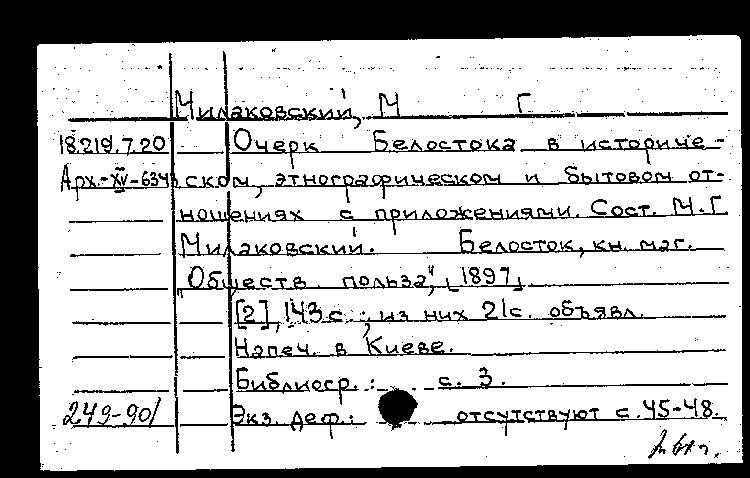 Милаковский, М Г
18.219.7.20 Очерк Белостока в историче-
Арх.-XV-634 ском, этнографическом и бытовом от-
ношениях с приложениями. Сост. М.Г.
Милаковский. Белосток, кн. маг.
„Обществ. польза", [1897].
[2], 143 с.; из них 21с. объявл.
Напеч. в Киеве.
Библиогр.: с. 3.
249-90/ Экз. деф.: отсутствуют с. 45-48.